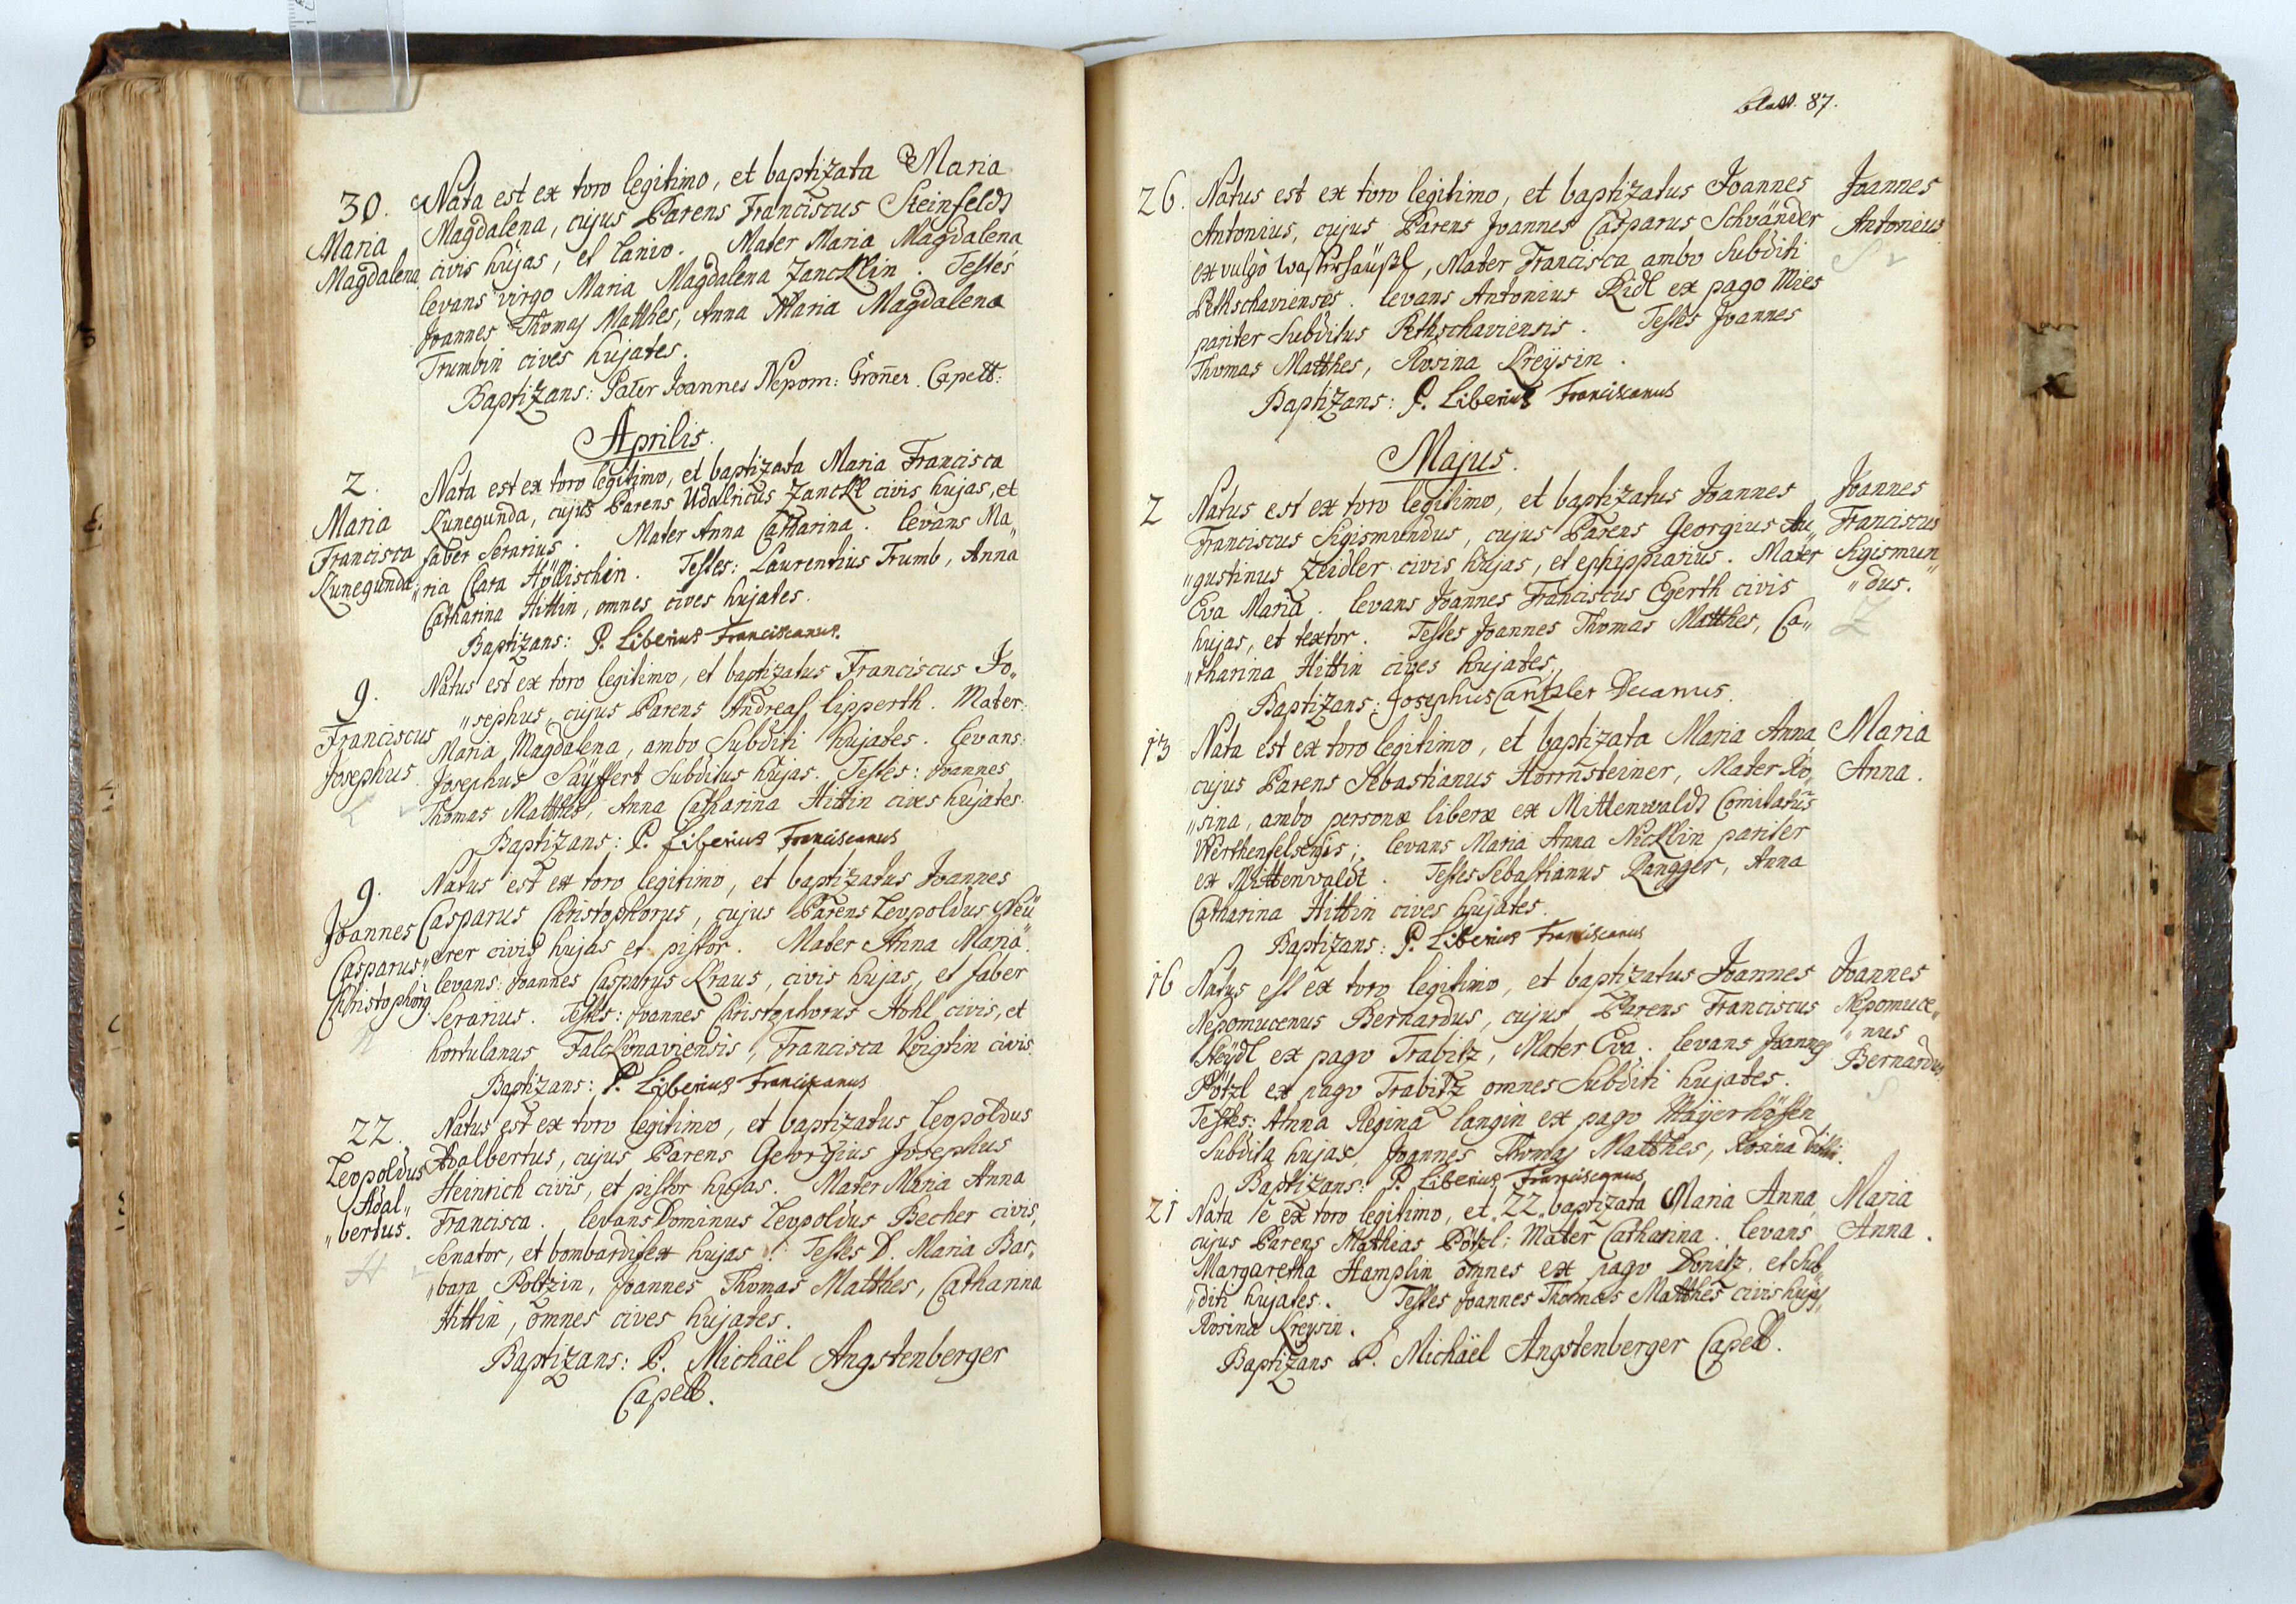 30. Nata est ex toro legitimo, et baptizata Maria
Maria Magdalena, cujus Parens Franciscus Steinfeldt
Magdalena civis hujas, et lanio. Mater Maria Magdalena
levans virgo Maria Magdalena Zancklin. Testes
Joannes Thomas Matthes, Anna Maria Magdalena
Trumbin cives hujates.
Baptizans: Pater Joannes Nepom: Groner. Capell:
Aprilis.
2. Nata est ex toro legitimo, et baptizata Maria Francisca
Maria Kunegunda, cujus Parens Udalricus Zanckl civis hujas, et
Francisca faber Serarius. Mater Anna Catharina. levans Ma„
Kunegunda „ria Clara Höllischin. Testes: Laurentius Trumb, Anna
Catharina Hittin, omnes cives hujates.
Baptizans: P. Liberius Franciscanus.
9. Natus est ex toro legitimo, et baptizatus Franciscus Jo„
Franciscus „sephus, cujus Parens Andreas Lipperth. Mater
Josephus Maria Magdalena, ambo Subditi hujates. levans:
Josephus Säyffert Subditus hujas. Testes: Joannes
L Thomas Matthes, Anna Catharina Hittin cives hujates.
Baptizans: P. Liberius Franciscanus
9. Natus est ex toro legitimo, et baptizatus Joannes
Joannes Casparus Christophorus, cujus Parens Leopoldus Neü„
Casparus „erer civis hujas et pistor. Mater Anna Maria.
Christophorg levans: Joannes Casparus Kraus, civis hujas, et faber
Serarius. Testes: Joannes Christophorus Hohl civis, et
N hortulanus Falckonaviensis, Francisca Voigtin civis.
Baptizans: P. Liberius Franciscanus
22. Natus est ex toro legitimo, et baptizatus Leopoldus
Leopoldus Adalbertus, cujus Parens Georgius Josephus
Adal„ Heinrich civis, et pistor hujas. Mater Maria Anna
„bertus. Francisca. levans Dominus Leopoldus Becher civis,
H Senator, et bombardifex hujas. Testes D. Maria Bar„
„bara Poltzin, Joannes Thomas Matthes, Catharina
Hittin, omnes cives hujates.
Baptizans: P. Michaël Angstenberger
Capell.
87.
26. Natus est ex toro legitimo, et baptizatus Joannes Joannes
Antonius, cujus Parens Joannes Casparus Schvänder Antonius
ex vulgò Wasserhäußl, Mater Francisca ambo Subditi S
Pethschavienses. levans Antonius Ridl ex pago Mies
pariter Subditus Pethschaviensis. Testes Joannes
Thomas Matthes, Rosina Kreÿsin.
Baptizans: P. Liberius Franciscanus
Majus.
2 Natus est ex toro legitimo, et baptizatus Joannes Joannes
Franciscus Sigismundus, cujus Parens Georgius Au„ Franciscus
„gustinus Zeidler civis hujas, et ephippiarius. Mater Sigismun„
Eva Maria. levans Joannes Franciscus Egerth civis „dus.
hujas, et textor. Testes Joannes Thomas Matthes, Ca„ Z
„tharina Hittin cives hujates.
Baptizans: Josephus Cantzler Decanus.
13 Nata est ex toro legitimo, et baptizata Maria Anna, Maria
cujus Parens Sebastianus Hornsteiner, Mater Ro„ Anna.
„sina, ambo personæ liberæ ex Mittenwaldt Comitatûs
Werthenfelsensis; levans Maria Anna Nicklin pariter
ex Mittenvaldt. Testes Sebastianus Rangger, Anna
Catharina Hittin cives hujates.
Baptizans: P. Liberius Franciscanus
16 Natus est ex toro legitimo, et baptizatus Joannes Joannes
Nepomucenus Bernardus, cujus Parens Franciscus Nepomuce„
Steÿdl ex pago Trabitz, Mater Eva. levans Joannes „nus
Pötzl ex pago Trabitz omnes Subditi hujates. Bernardus.
Testes: Anna Regina Langin ex pago Mäÿerhöfen S
Subdita hujas, Joannes Thomas Matthes, Rosina
Baptizans: P. Liberius Franciscanus
21 Nata ë ex toro legitimo, et „22„ baptizata Maria Anna, Maria
cujus Parens Mathias Pötzl; Mater Catharina. levans Anna.
Margaretha Stamplin omnes ex pago Donitz, et Sub„
„diti hujates. Testes Joannes Thomas Matthes civis hujas,
Rosina Kreysin.
Baptizans P. Michaël Angstenberger Capell.